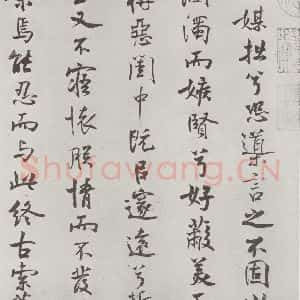 媒拙兮恐導言之不固
溷濁而嫉賢兮好蔽美而
惡閨中既以邃遠兮
又不寤懷朕情而不發
焉能忍而與此終古索
Shufawang.CN